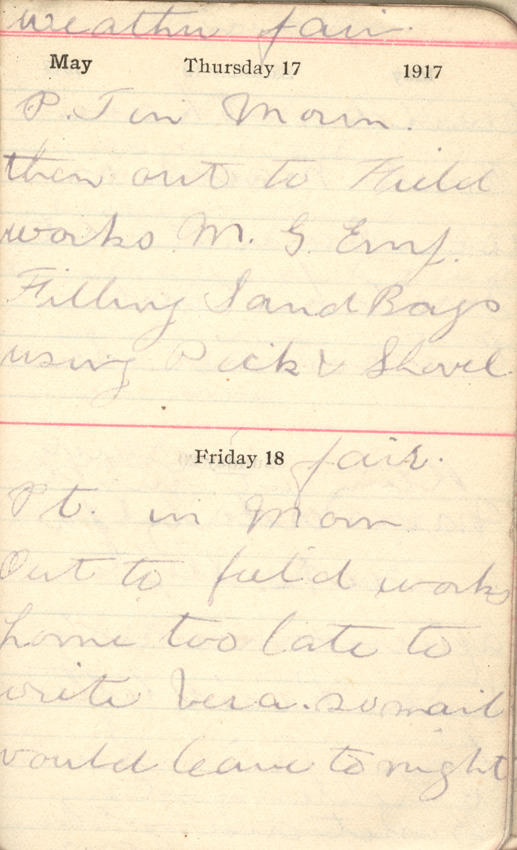 weather fair.
May Thursday 17 1917
P. T in Morn.
then out to Field
works M. G. Emp.
Filling Sand Bags
using Pick & Shovel
Friday 18 fair.
Pt. in Morn
Out to field works
home too late to
write Vera. so mail
would leave to night